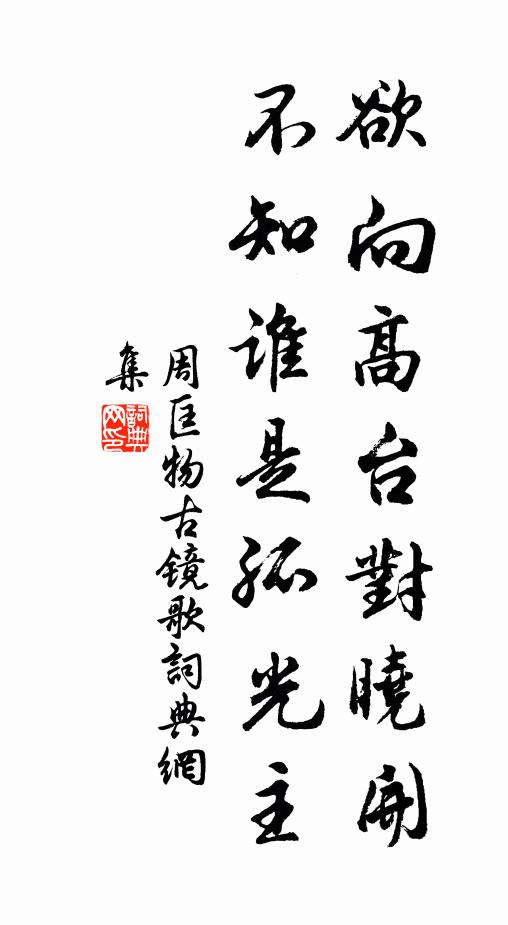 欲向高台對曉開
不知誰是孤光主
周匡物古鏡歌詞典網
集
詞典网印